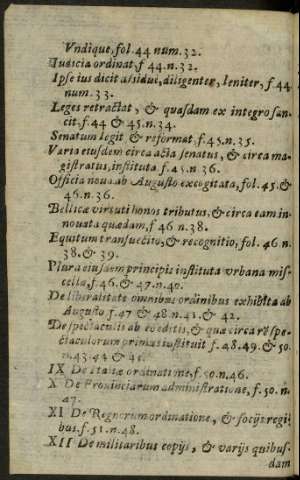 Vndique, fol. 44 num. 32.
Iudicia ordinat, f 44. n. 32.
Ipse ius dicit assidue, diligenter, leniter, f 44
num. 33.
Leges retractat, & quasdam ex integro san-
cit, f. 44 & 45. n. 34.
Senatum legit & reformat, f. 45. n. 35.
Varia eiusdem circa acta senatus, & circa ma-
gistratus, instituta f. 45. n. 36.
Officia noua ab Augusto excogitata, fol. 45. &
46. n. 36.
Bellicæ virtuti honos tributus, & circa eam in-
nouata quædam, f 46 n. 38.
Equitum transuectio, & recognitio, fol. 46 n.
38. & 39.
Plura eiusdem principis instituta vrbana mis-
cella, f. 46. & 47. n. 40.
De liberalitate omnibus ordinibus exhibita ab
Augusto f. 47 & 48. n. 41. & 42.
De spectaculis ab eo editis, & quæ circa rē spe-
ctaculorum primus instituit f. 48. 49. & 50.
n. 43. 44 &
IX De Italiæ ordinatione, f. 50. n. 46.
X De Prouinciarum administratione, f. 50. n.
47.
XI De Regnorum ordinatione, & socijs regi-
bus. f. 51. n. 48.
XII De militaribus copijs, & varijs quibus-
dam